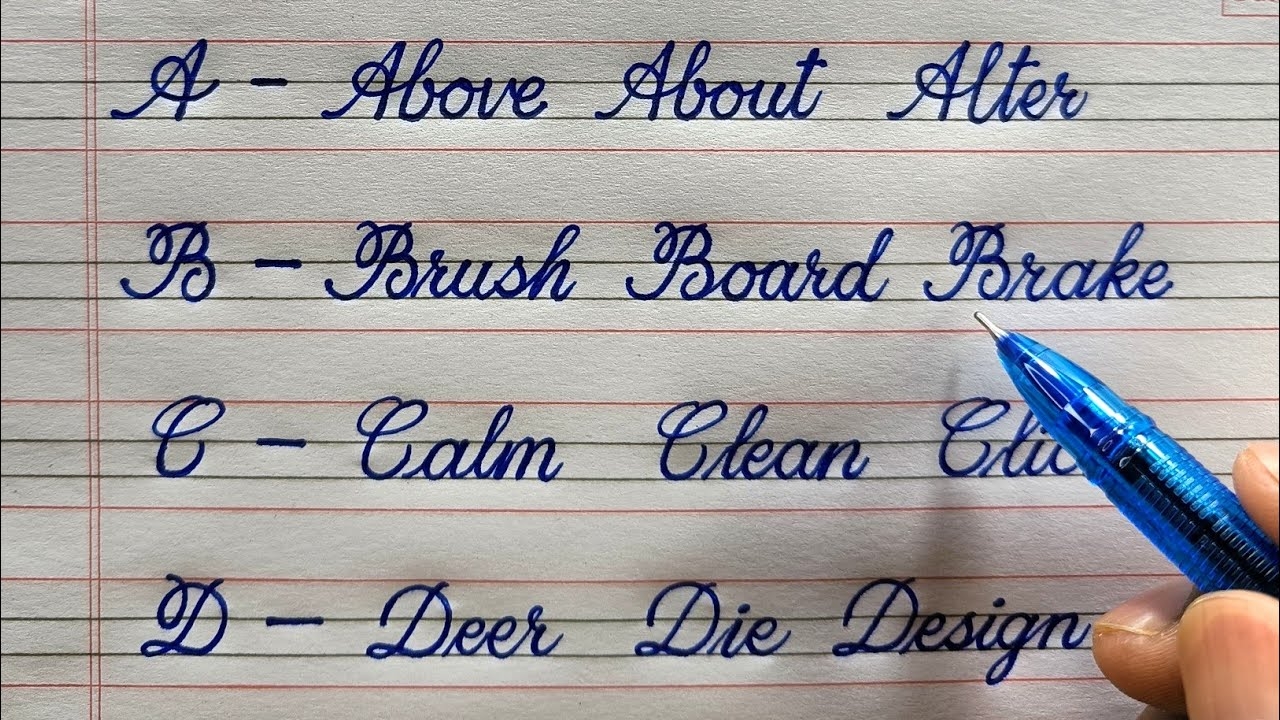 A - Above About Alter
B - Brush Board Brake
C - Calm Clean
D - Deer Die Design